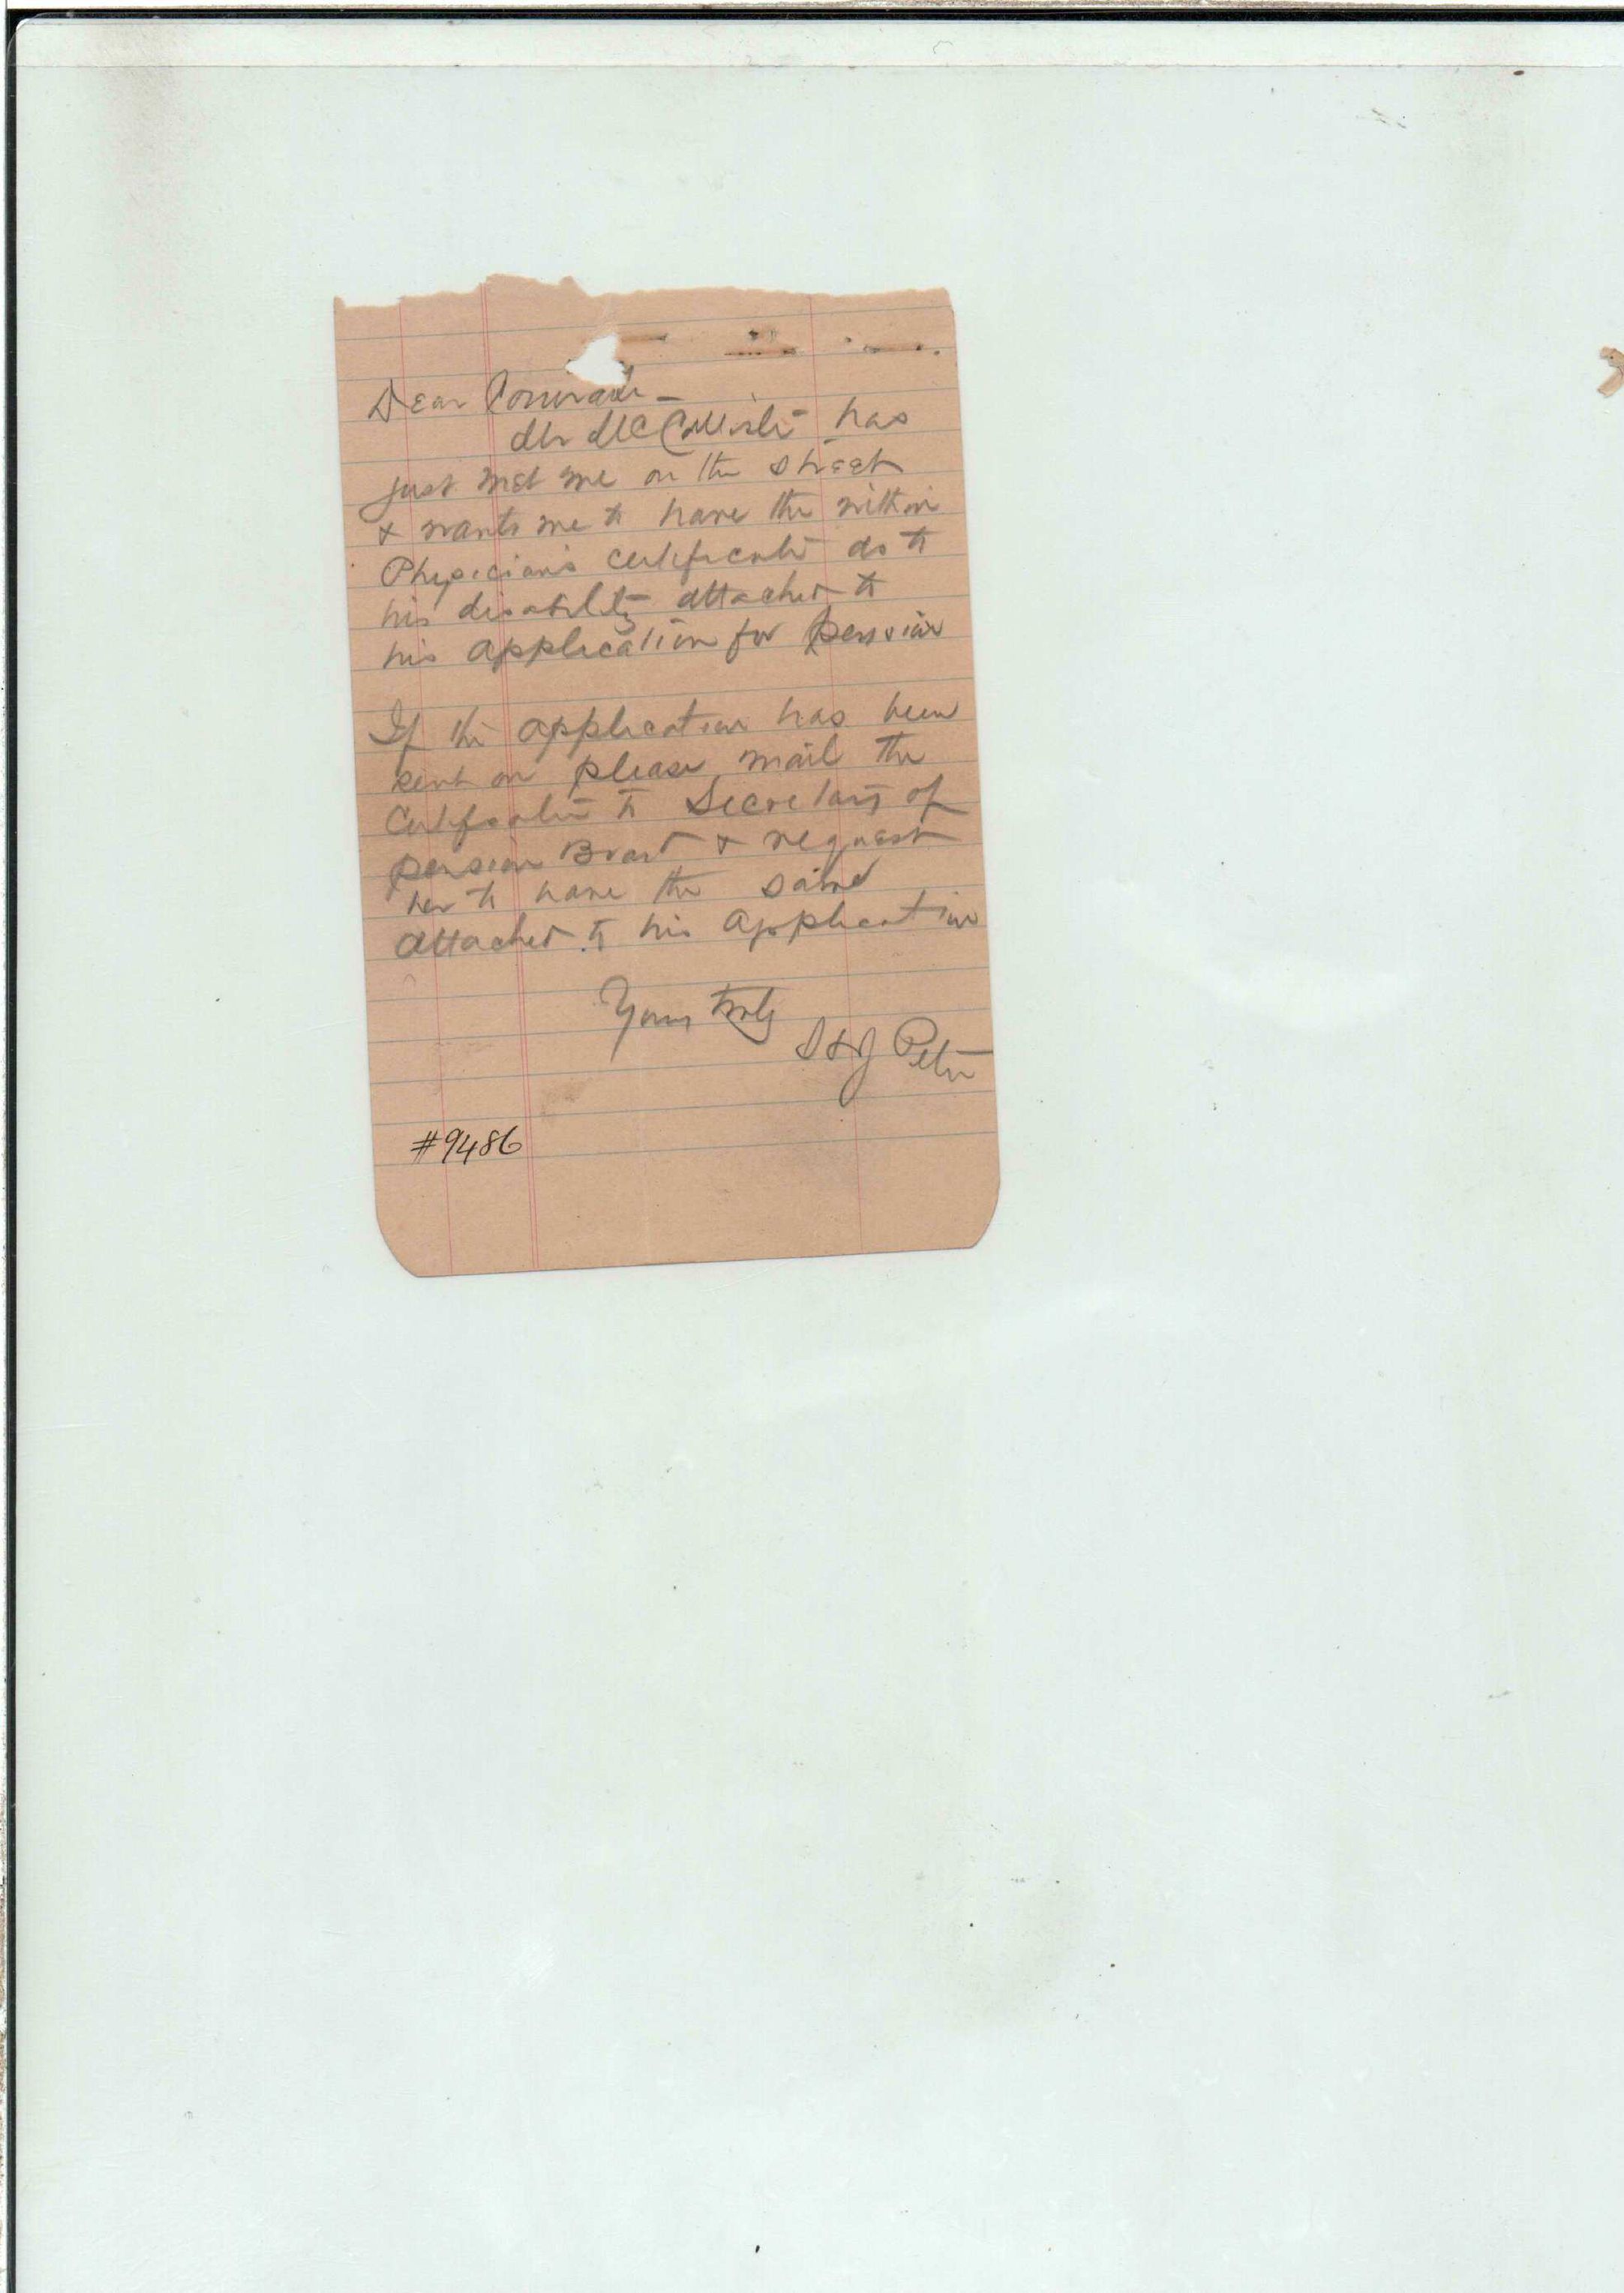 Dear Comrade –
Mr McCollister has
just met me on the street
& wants me to have the within
Physicians certificate as to
his disability attached to
his application for pension
If the application has been
sent on please mail the
Certificate to Secretary of
pension Board & request
her to have the same
attached to his application
Yours truly
Peter
#9486